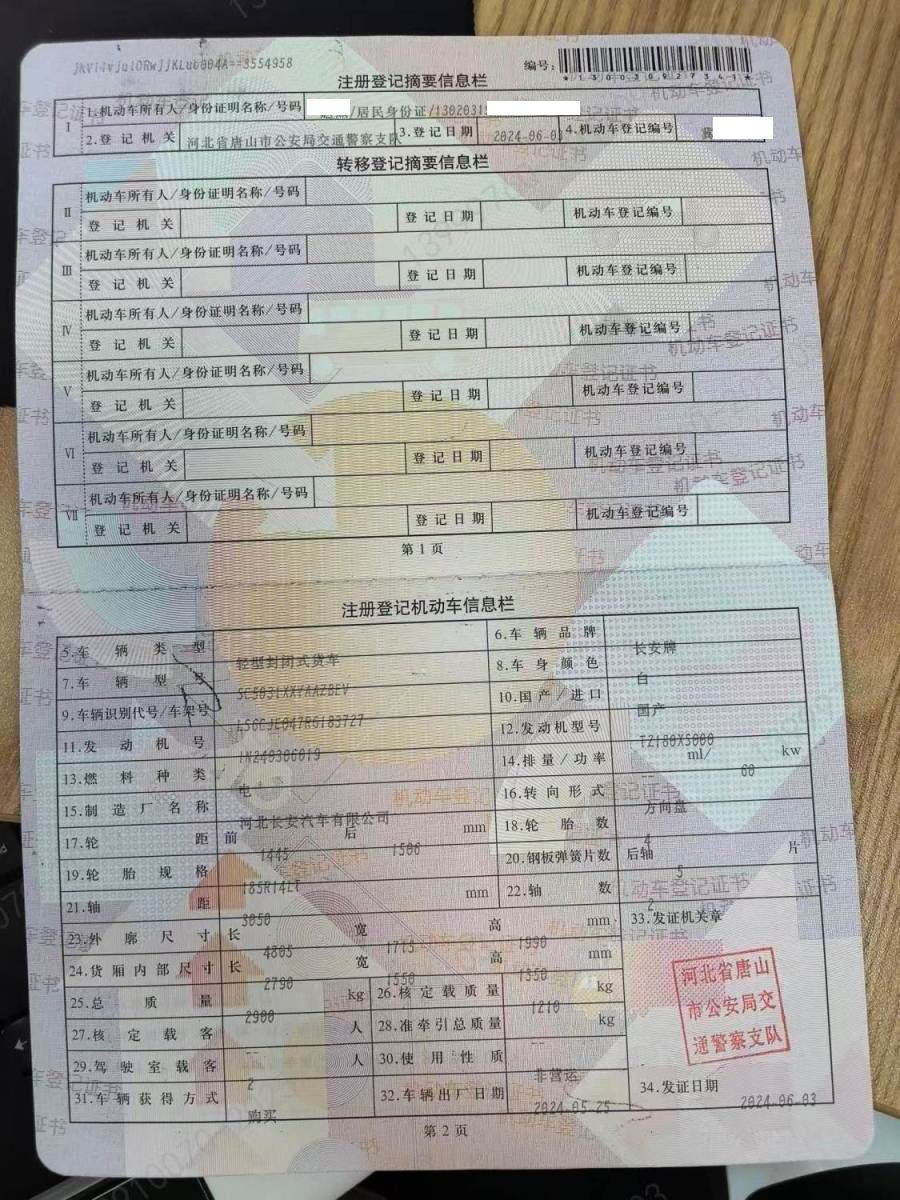 编号:
*130030927341*
注册登记摘要信息栏
I
1.机动车所有人/身份证明名称/号码 /居民身份证/1302031
2.登记机关 河北省唐山市公安局交通警察支队 3.登记日期 2024-06-03 4.机动车登记编号 冀
转移登记摘要信息栏
II
机动车所有人/身份证明名称/号码
登记机关 登记日期 机动车登记编号
III
机动车所有人/身份证明名称/号码
登记机关 登记日期 机动车登记编号
IV
机动车所有人/身份证明名称/号码
登记机关 登记日期 机动车登记编号
V
机动车所有人/身份证明名称/号码
登记机关 登记日期 机动车登记编号
VI
机动车所有人/身份证明名称/号码
登记机关 登记日期 机动车登记编号
VII
机动车所有人/身份证明名称/号码
登记机关 登记日期 机动车登记编号
第1页
注册登记机动车信息栏
5.车辆类型 轻型封闭式货车 6.车辆品牌 长安牌
7.车辆型号 SC5031XXYAAZBEV 8.车身颜色 白
9.车辆识别代号/车架号 10.国产/进口 国产
11.发动机号 12.发动机型号 TZ180XS000
13.燃料种类 电 14.排量/功率 -- ml/ 60 kw
15.制造厂名称 河北长安汽车有限公司 16.转向形式 方向盘
17.轮距 前 1445 后 1500 mm 18.轮胎数 4
19.轮胎规格 185R14LT 20.钢板弹簧片数 后轴 5 片
21.轴距 3050 mm 22.轴数 2
23.外廓尺寸 长 4805 宽 1715 高 1990 mm 33.发证机关章
24.货厢内部尺寸 长 2790 宽 1550 高 1350 mm
25.总质量 2900 kg 26.核定载质量 1210 kg
27.核定载客 -- 人 28.准牵引总质量 -- kg
29.驾驶室载客 2 人 30.使用性质 非营运
31.车辆获得方式 购买 32.车辆出厂日期 2024.05.25 34.发证日期 2024.06.03
河北省唐山
市公安局交
通警察支队
第2页